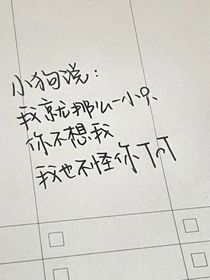 小狗说：
我就那么一小只
你不想我
我也不怪你TnT